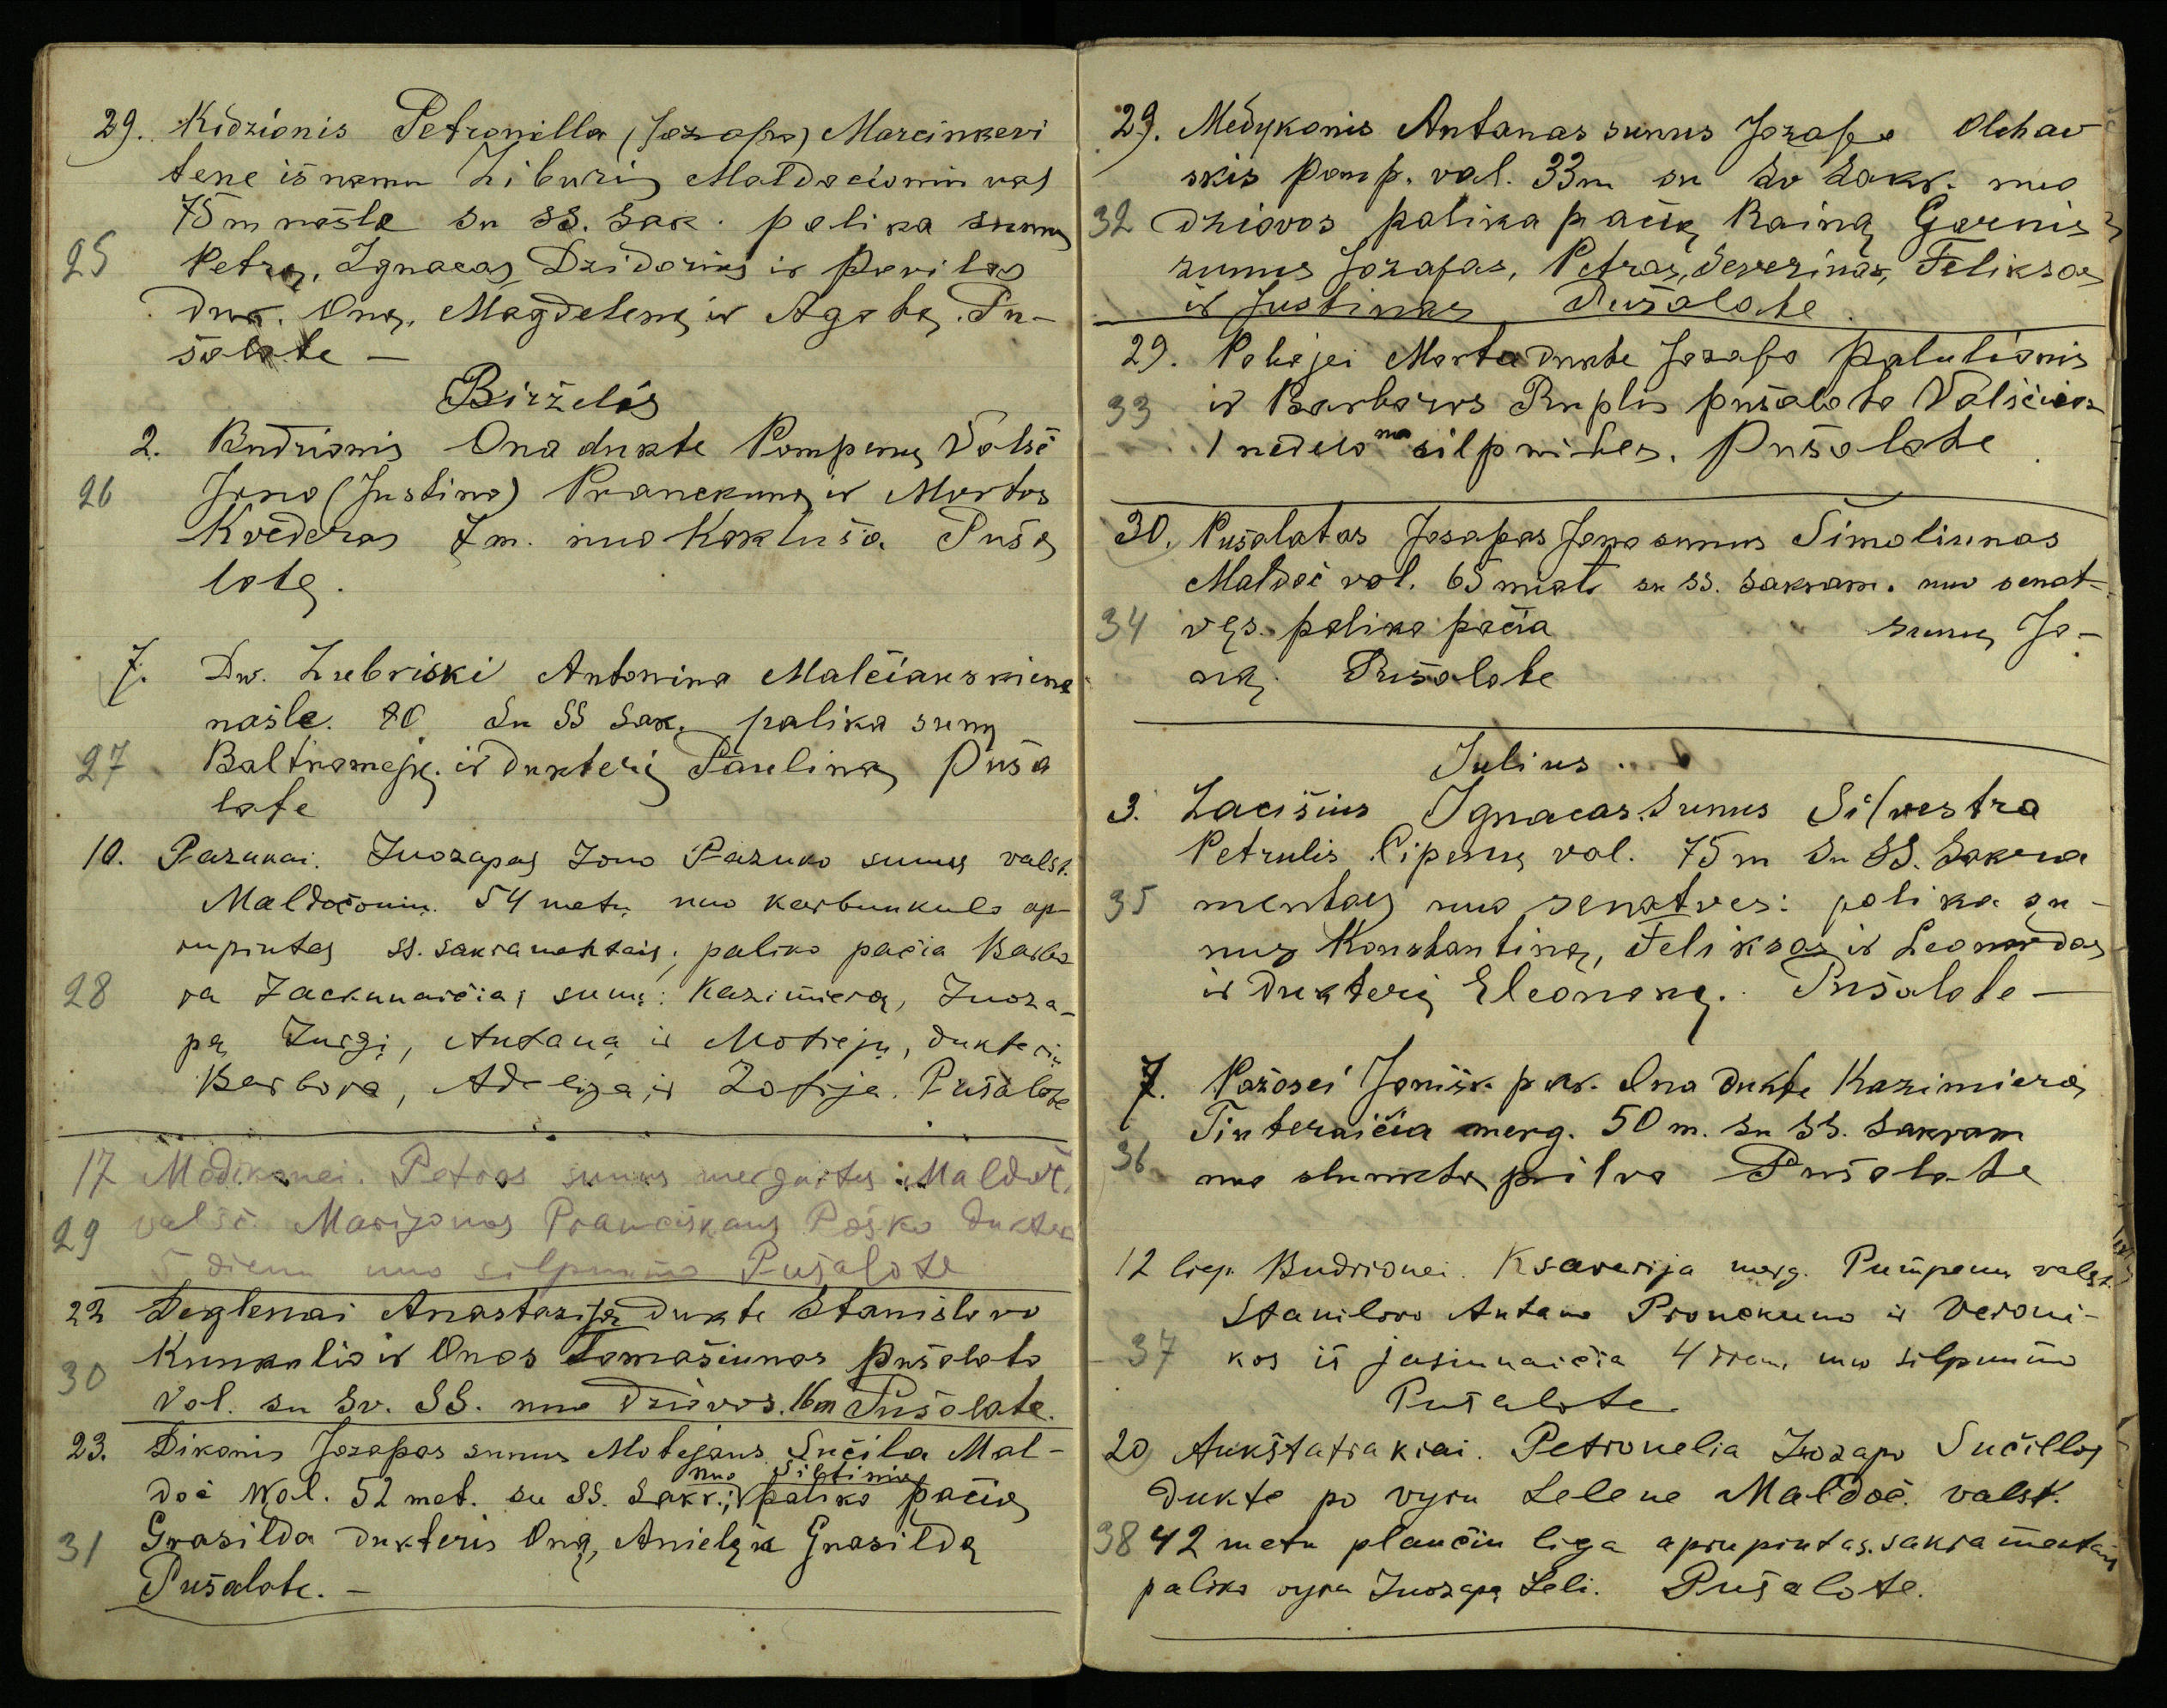 29. Kidzionis Petronilla (Jozapo) Marcinkevi
tene iš namu Žiburių Maldocioniu val
75 m našle su SS. Sak. palika sunus
25 Petrą, Ignacas, Dzidorius ir Povilas
Duk. Oną, Magdeleną ir Agotą. Pu-
šalate —
Birželis
2. Budrionis Ona dukte Pompenų Valsč
26 Jono (Justino) Pranckuną ir Mortos
Kvederas 7 m. nuo Kokluša Puša
lotę.
7. Dw. Zubriski Antonina Malčiauskiene
našle. 80 Su SS Sak. palika sunų
27 Baltramejų ir Dukterių Pauliną Puša
late
10. Pazukai. Juozapas Jono Pazuko sunus valst.
Maldočonių. 54 metų nuo karbunkulo ap-
rupintas ss. sakramentais; paliko pačia Barbo
28 ra Zackunaičia; sunų: Kazimierą, Juoza-
pą Jurgį, Antaną ir Motiejų, dukterių
Barbora, Adelija, ir Zofija. Pušalote
17 Medikonei. Petras sunus mergaitės Maldoč.
29 valšč. Marijonos Pranciskaus Poško dukters
5 dienu nuo silpnumo Pušalote
22 Deglenai Anastazija dukte Stanislovo
30 Kunkulio ir Onos Tamašiunas pušaloto
Vol. su Sv. SS. nuo Dziovos. 16 m Pušalate.
23. Dikonis Jozapas sunus Motejaus Sučila Mal-
nuo Šiltinių
doč Wol. 52 met. su SS. Sakr.; paliko pačią
31 Grasilda dukteris Oną, Anielę ir Grasildą
Pušalote. —
29. Medykonis Antanas sunus Jozapo Olchav
skis Pomp. val. 33 m su Sv Sakr. nuo
32 dziovos palika pačių Rainą Garnis
sunus Jozapas, Petras, Severinas, Feliksas
ir Justinas Pušalate
29. Pakejei Morta dukte Jozapo Palulionis
33 ir Barboros Ruplis pušaloto Valsčiaus
1 nedelo nuo silpnibes. Pušalate
30. Pušalatas Josapas Jono sunus Simoliunas
Maldoč vol. 65 miati su SS. Sakram. nuo senat-
34 vęs. palika pačia sunų Jo-
ną. Pušolote
Julius
3. Lacišius Ignacas sunus Silvestra
Petrulis Lipenų val. 75 m su SS. Sakra
35 mentas nuo senatves: palika su-
nuz Konstantiną, Feliksas ir Leonardas
ir Dukterių Eleonorą. Pušalote —
7. Pažosei Jonišk. par. Ona dukte Kazimierą
Tinteraičia merg. 50 m. su SS. Sakram
36 nuo slunkta pilva Pušolate
12 liep. Budrionei. Ksaverija merg. Pumpenu valst.
Stanilovo Antano Pronckuno ir Veroni-
37 kos iš Jasiunaičia 4 dien. nuo silpnumo
Pušalote
20 Aukštatrakiai. Petronelia Juozapo Sučillos
dukte po vyru Lelene Maldoč. valst.
38 42 metu plaučiu liga aprupintas sakramentais
paliko vyra Juozapą Leli. Pušalote.